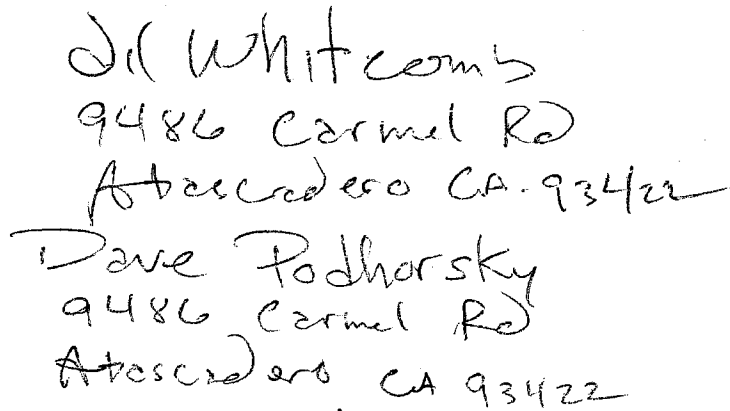 Jil Whitcomb
9486 Carmel Rd
Atascadero CA. 93422
Dave Podhorsky
9486 Carmel Rd
Atascadero CA 93422